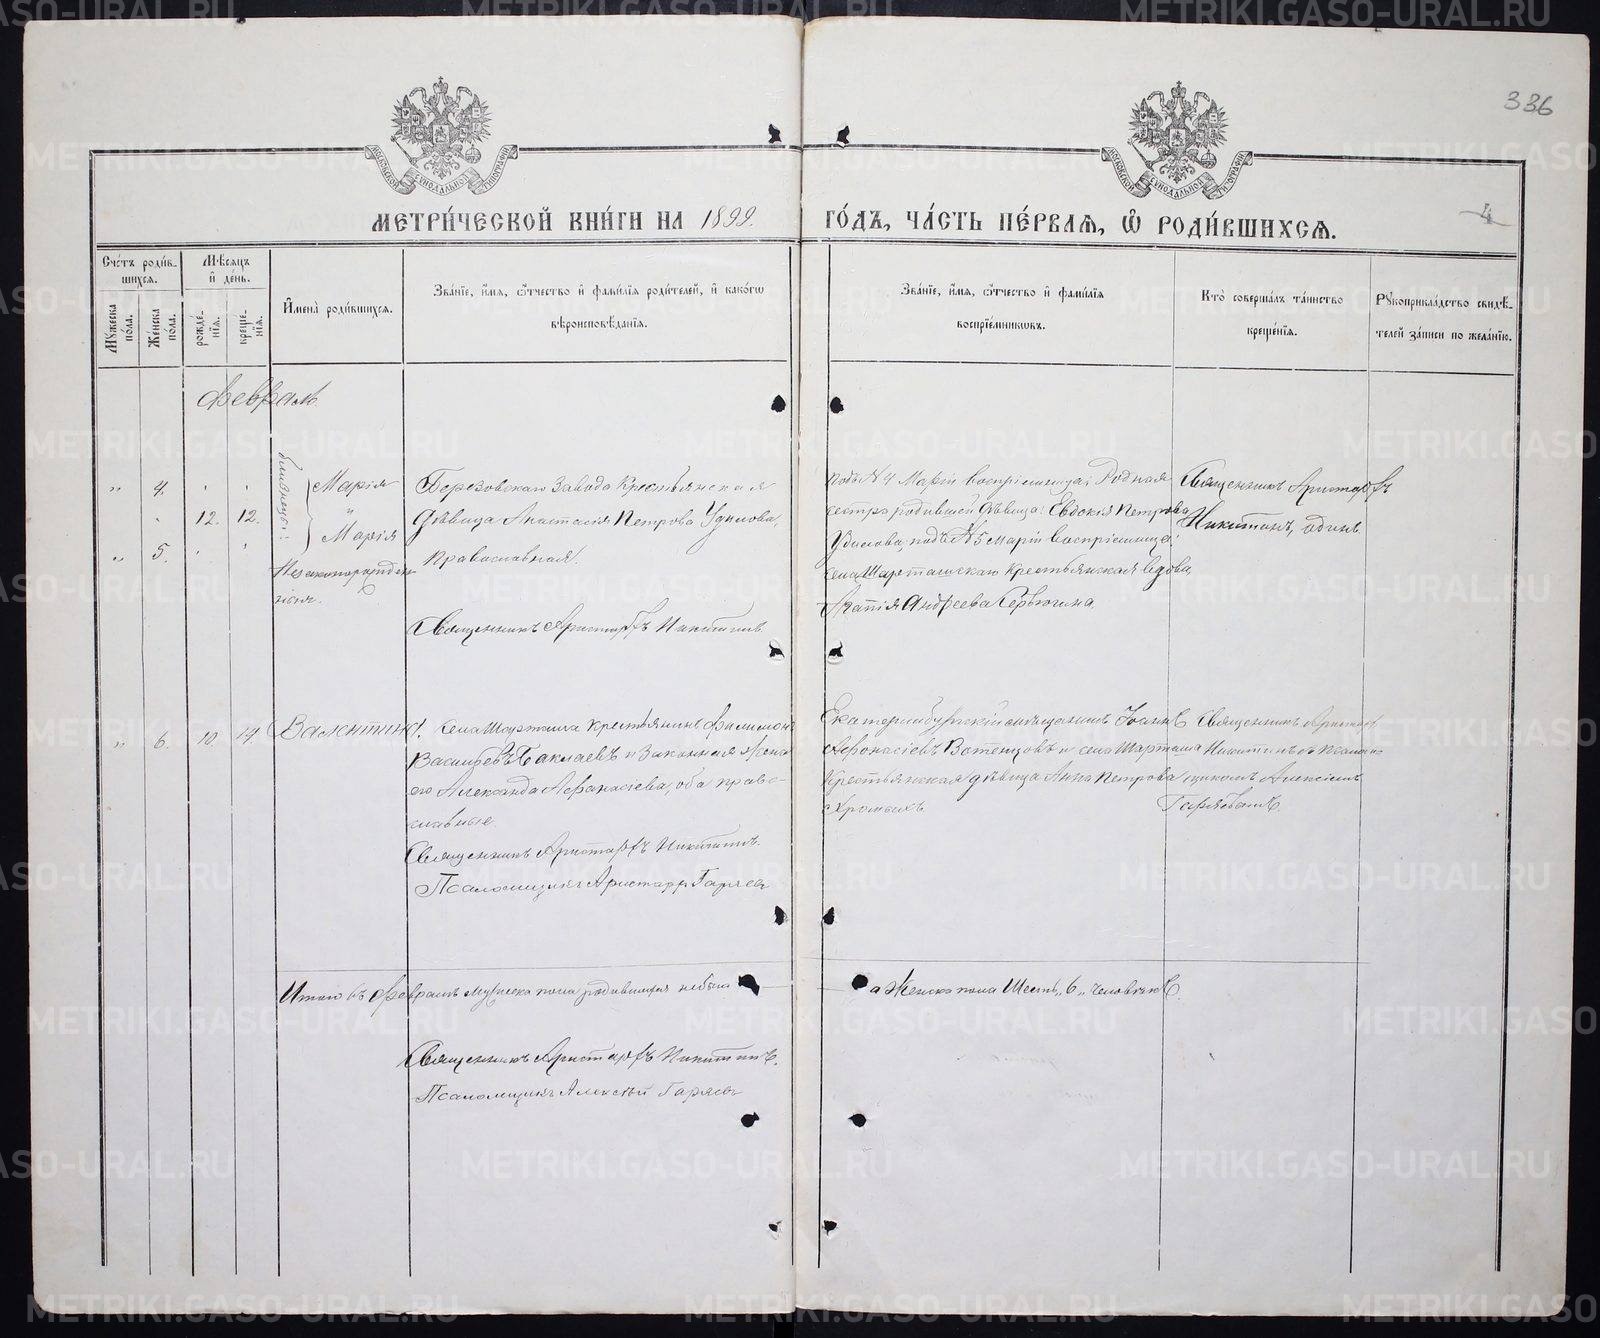 336
МОСКОВСКОЙ СѴНОДАЛЬНОЙ ТИПОГРАФІИ
МОСКОВСКОЙ СѴНОДАЛЬНОЙ ТИПОГРАФІИ
МЕТРИ́ЧЕСКОЙ КНИ́ГИ НА 1899. ГО́ДЪ, ЧА́СТЬ ПЕ́РВАЯ, Ѡ҆ РОДИ́ВШИХСЯ.
4
Сче́тъ роди́в-
шихся.
Мѣ́сяцъ
и҆ де́нь.
Мꙋ́жеска
пола.
Же́нска
пола.
рожде́-
нїя.
креще́-
нїя.
И҆мена̀ роди́вшихся.
Зва́нїе, и҆́мя, ѻ҆́тчество и҆ фами́лїя роди́телей, и҆ како́гѡ
вѣроисповѣ́данїя.
Зва́нїе, и҆́мя, ѻ҆́тчество и҆ фами́лїя
воспрїе́мникѡвъ.
Кто̀ соверша́лъ та́инство
креще́нїя.
Рꙋкоприкла́дство свидѣ́-
телей за́писи по жела́нїю.
Февраль
близнецы:
" 4. Марія
12. 12. "
" 5. Марія
Незаконорожден-
ныя.
Березовскаго Завода Крестьянская
дѣвица Анастасія Петрова Удилова,
Православная.
Священникъ Аристархъ Никитинъ.
подъ N 4 Маріи воспріемница: Родная
сестра родившей дѣвица: Евдокія Петрова
Удилова; подъ N 5 Маріи воспріемница:
села Шарташскаго Крестьянская вдова,
Агапія Андреева Сервюгина.
Священникъ Аристархъ
Никитинъ, одинъ.
" 6. 10 14. Валентина.
Села Шарташа Крестьянинъ Филимонъ
Васильевъ Баклаевъ и Законная жена
его Александра Афанасіева, оба право-
славные.
Священникъ Аристархъ Никитинъ.
Псаломщикъ Аристархъ Гаряевъ
Екатеринбургскій мѣщанинъ Іоаннъ
Афонасіевъ Вотенцовъ и села Шарташа
Крестьянская дѣвица Анна Петрова
Хромыхъ
Священникъ Аристархъ
Никитинъ съ Псалом-
щикомъ Алексіемъ
Гаряевымъ.
Итого въ Февралѣ мужеска пола родившихся небыло
а Женска пола Шесть „6„ человѣкъ.
Священникъ Аристархъ Никитинъ.
Псаломщикъ Алексѣй Гаряевъ
METRIKI.GASO-URAL.RU